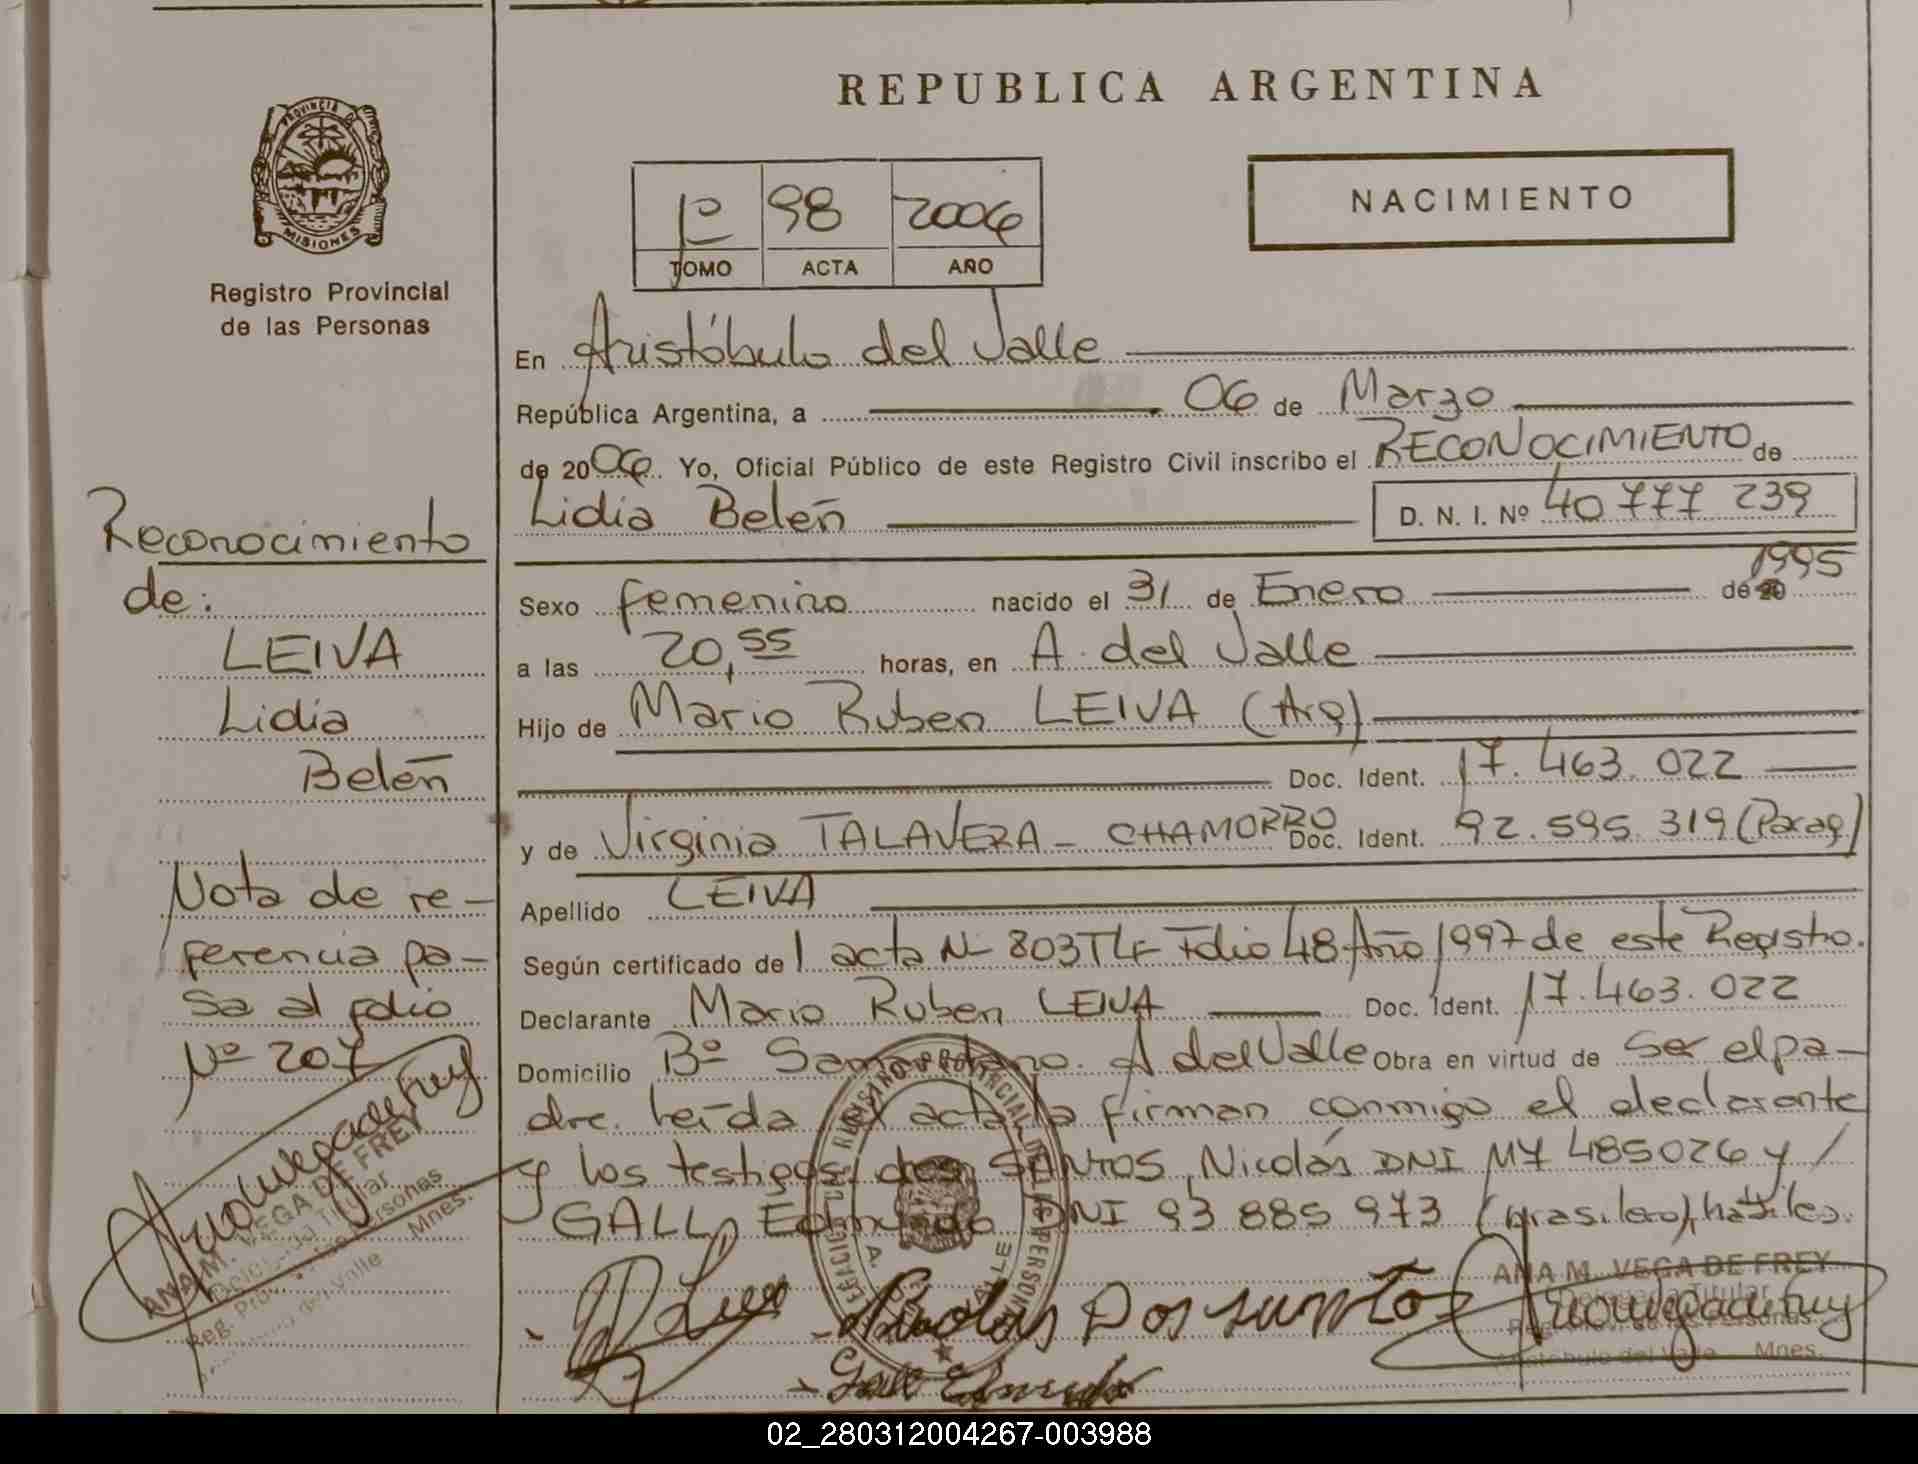 REPUBLICA ARGENTINA
PROVINCIA DE
MISIONES
Registro Provincial
de las Personas
1º 98 2006
TOMO ACTA AÑO
NACIMIENTO
En Aristóbulo del Valle
República Argentina, a 06 de Marzo
de 2006. Yo, Oficial Público de este Registro Civil inscribo el RECONOCIMIENTO de
Lidia Belén D. N. I. Nº 40 777 239
Sexo femenino nacido el 31 de Enero de 1995
a las 20,55 horas, en A. del Valle
Hijo de Mario Ruben LEIVA (Arg)
Doc. Ident. 17.463.022
y de Virginia TALAVERA - CHAMORRO Doc. Ident. 92.595.319 (Parag)
Apellido LEIVA
Según certificado de l acta Nº 803 T4 Folio 48 Año 1997 de este Registro.
Declarante Mario Ruben LEIVA Doc. Ident. 17.463.022
Domicilio Bº A del Valle Obra en virtud de ser el pa-
dre. Leída el acta la firman conmigo el declarante
y los testigos dos SANTOS, Nicolás DNI M7 485026 y /
GALL, Edmundo DNI 93 885 973 (brasilero), hábiles.
Reconocimiento
de:
LEIVA
Lidia
Belén
Nota de re-
ferencia pa-
sa al folio
Nº 207
ANA M. VEGA DE FREY
Delegada Titular
Reg. Prov. de las Personas
Aristóbulo del Valle Mnes.
REGISTRO PROVINCIAL DE LAS PERSONAS
A. DEL VALLE
Nicolas Dos Santos
Gall Edmundo
ANA M. VEGA DE FREY
Delegada Titular
Reg. Prov. de las Personas
Aristóbulo del Valle Mnes.
02_280312004267-003988